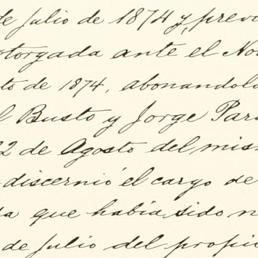 de julio de 1874 y, previ
otorgada ante el No
to de 1874, abonandolo
l Busto y Jorge Par
22 de Agosto del mis
discernió el cargo de
da que había sido n
de julio del propio